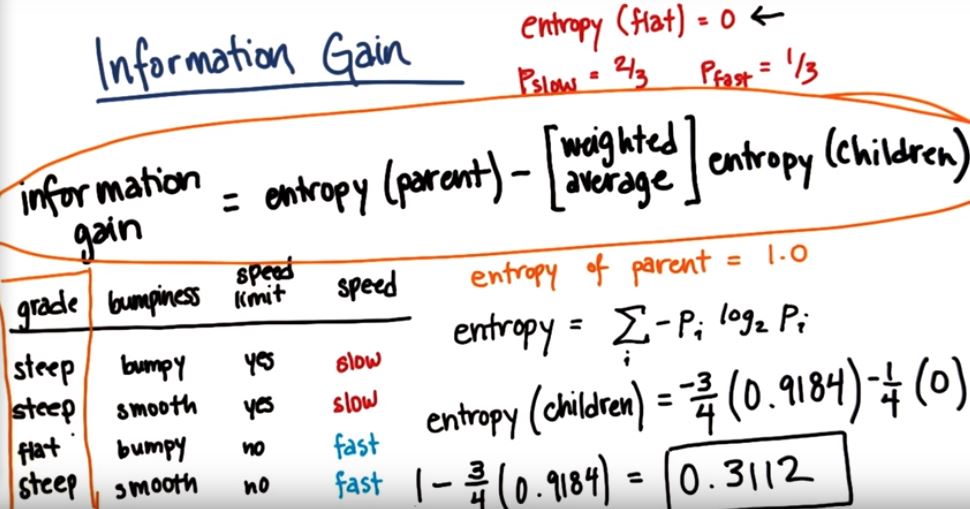 Information Gain
entropy (flat) = 0 ←
Pslow = 2/3 Pfast = 1/3
information gain = entropy (parent) - [weighted average] entropy (children)
entropy of parent = 1.0
grade bumpiness speed limit speed
steep bumpy yes slow
steep smooth yes slow
flat bumpy no fast
steep smooth no fast
entropy = Σi -Pi log2 Pi
entropy (children) = -3/4 (0.9184) -1/4 (0)
1 - 3/4 (0.9184) = 0.3112